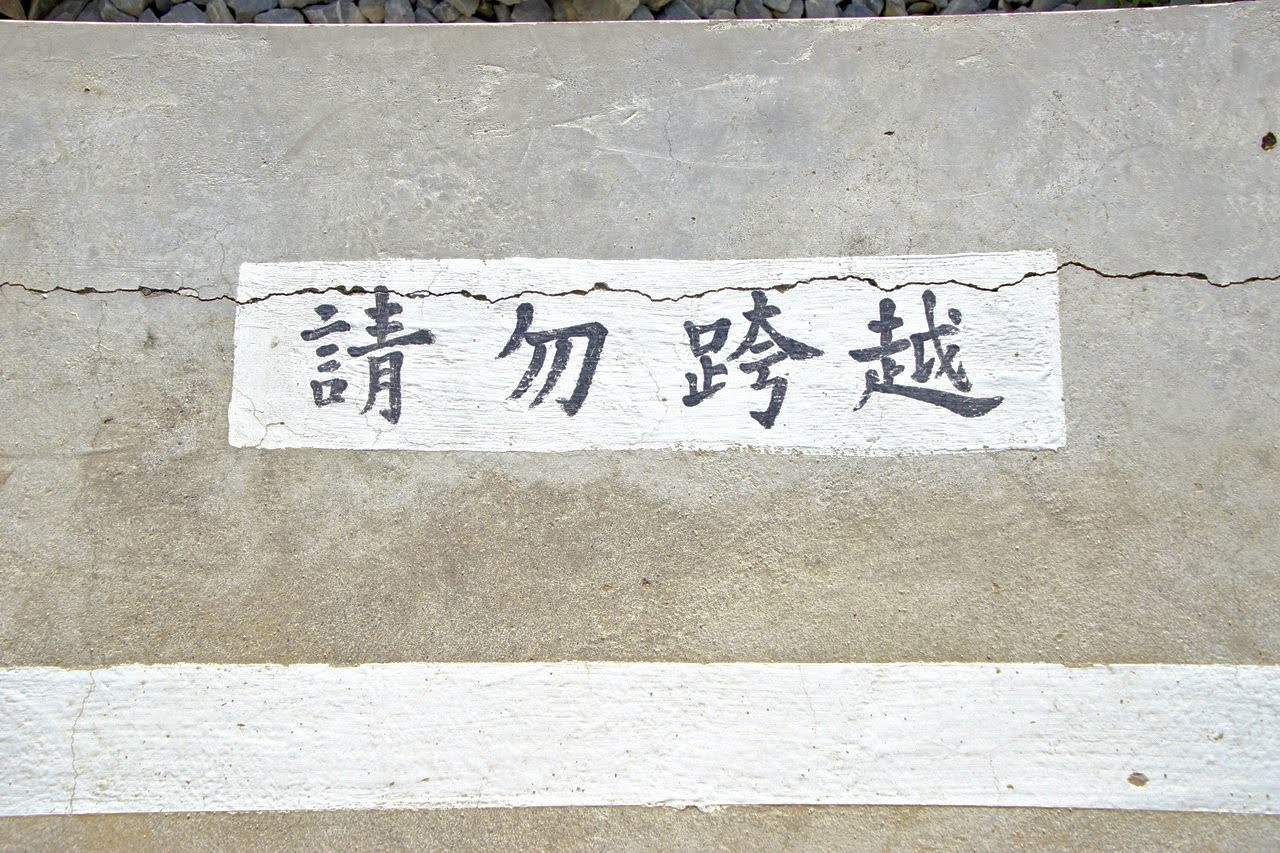 請勿跨越